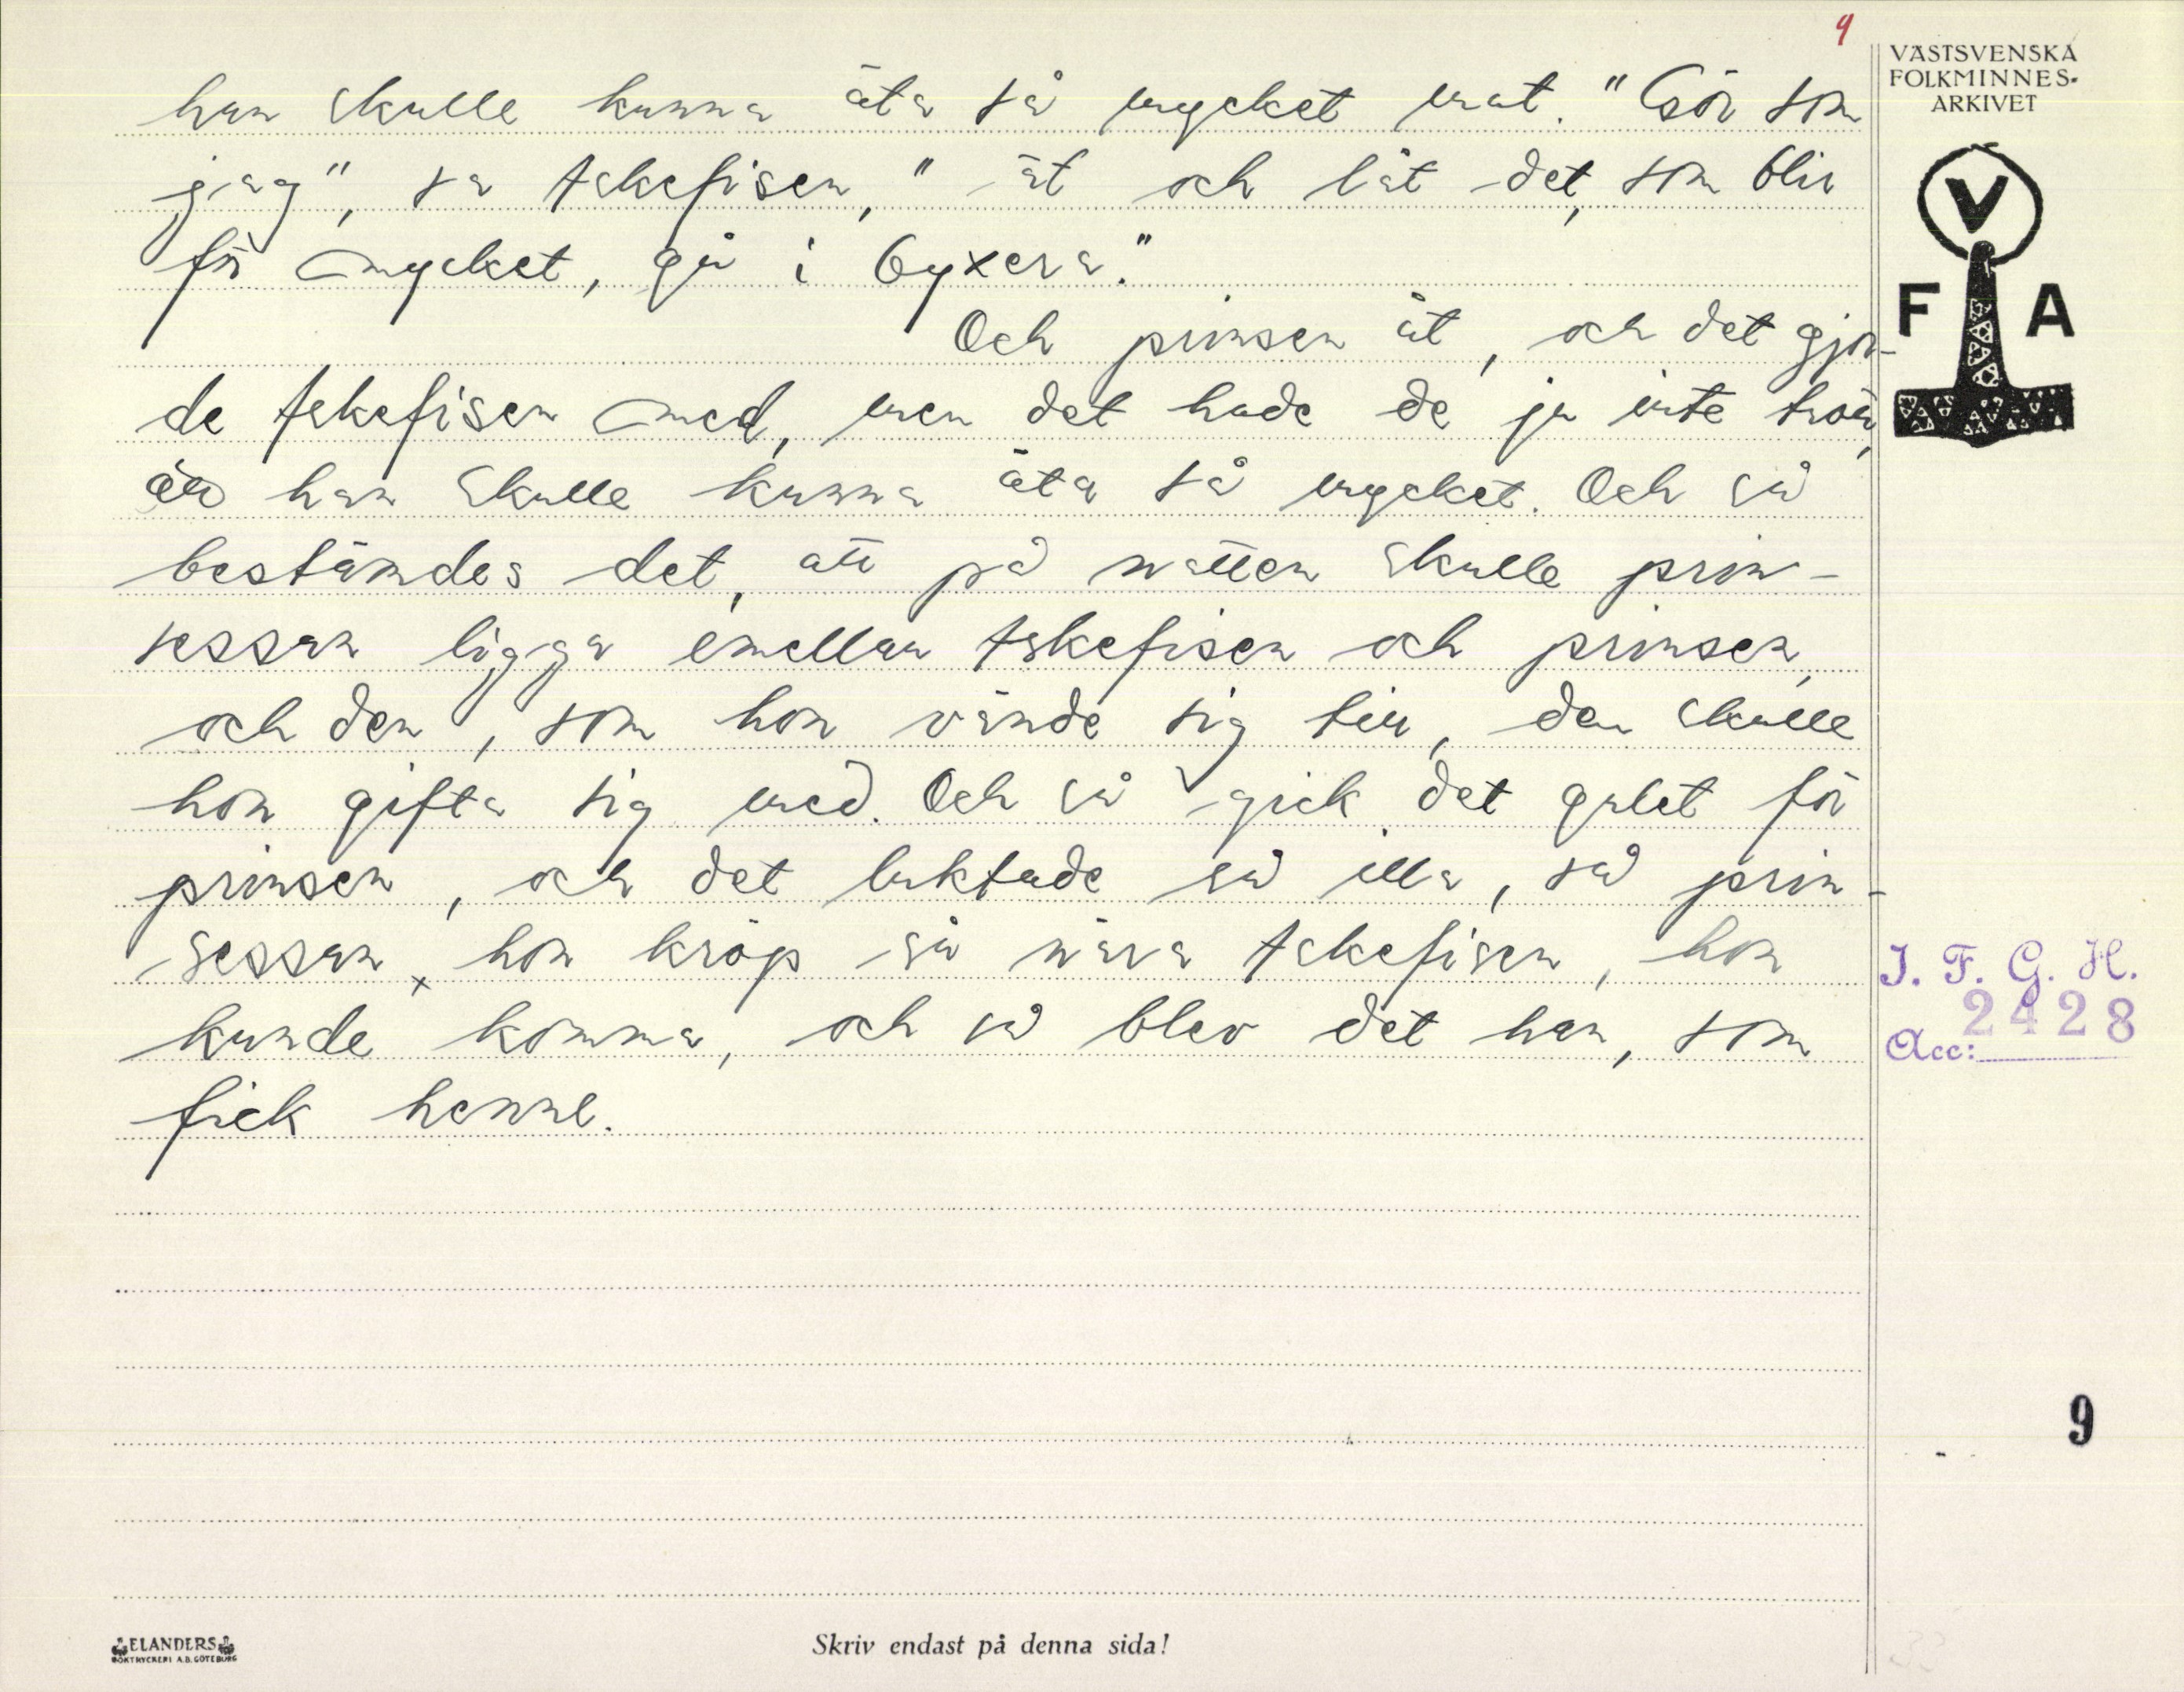 9
VÄSTSVENSKA
FOLKMINNES-
ARKIVET
V
F A
han skulle kunna äta så mycket mat. "Gör som
jag", sa Askefisen, "ät och låt det, som blir
för mycket, gå i byxera."
Och prinsen åt, och det gjor-
de Askefisen med, men det hade de ju inte trott,
att han skulle kunna äta så mycket. Och så
bestämdes det, att på natten skulle prin-
sessan ligga emellan Askefisen och prinsen,
och den, som hon vände sig till, den skulle
hon gifta sig med. Och så gick det galet för
prinsen, och det luktade så illa, så prin-
sessan, hon kröp så nära Askefisen, hon
kunde komma, och så blev det han, som
fick henne.
I. F. G. H.
2428
Acc:
9
ELANDERS
BOKTRYCKERI A.B. GÖTEBORG
Skriv endast på denna sida!